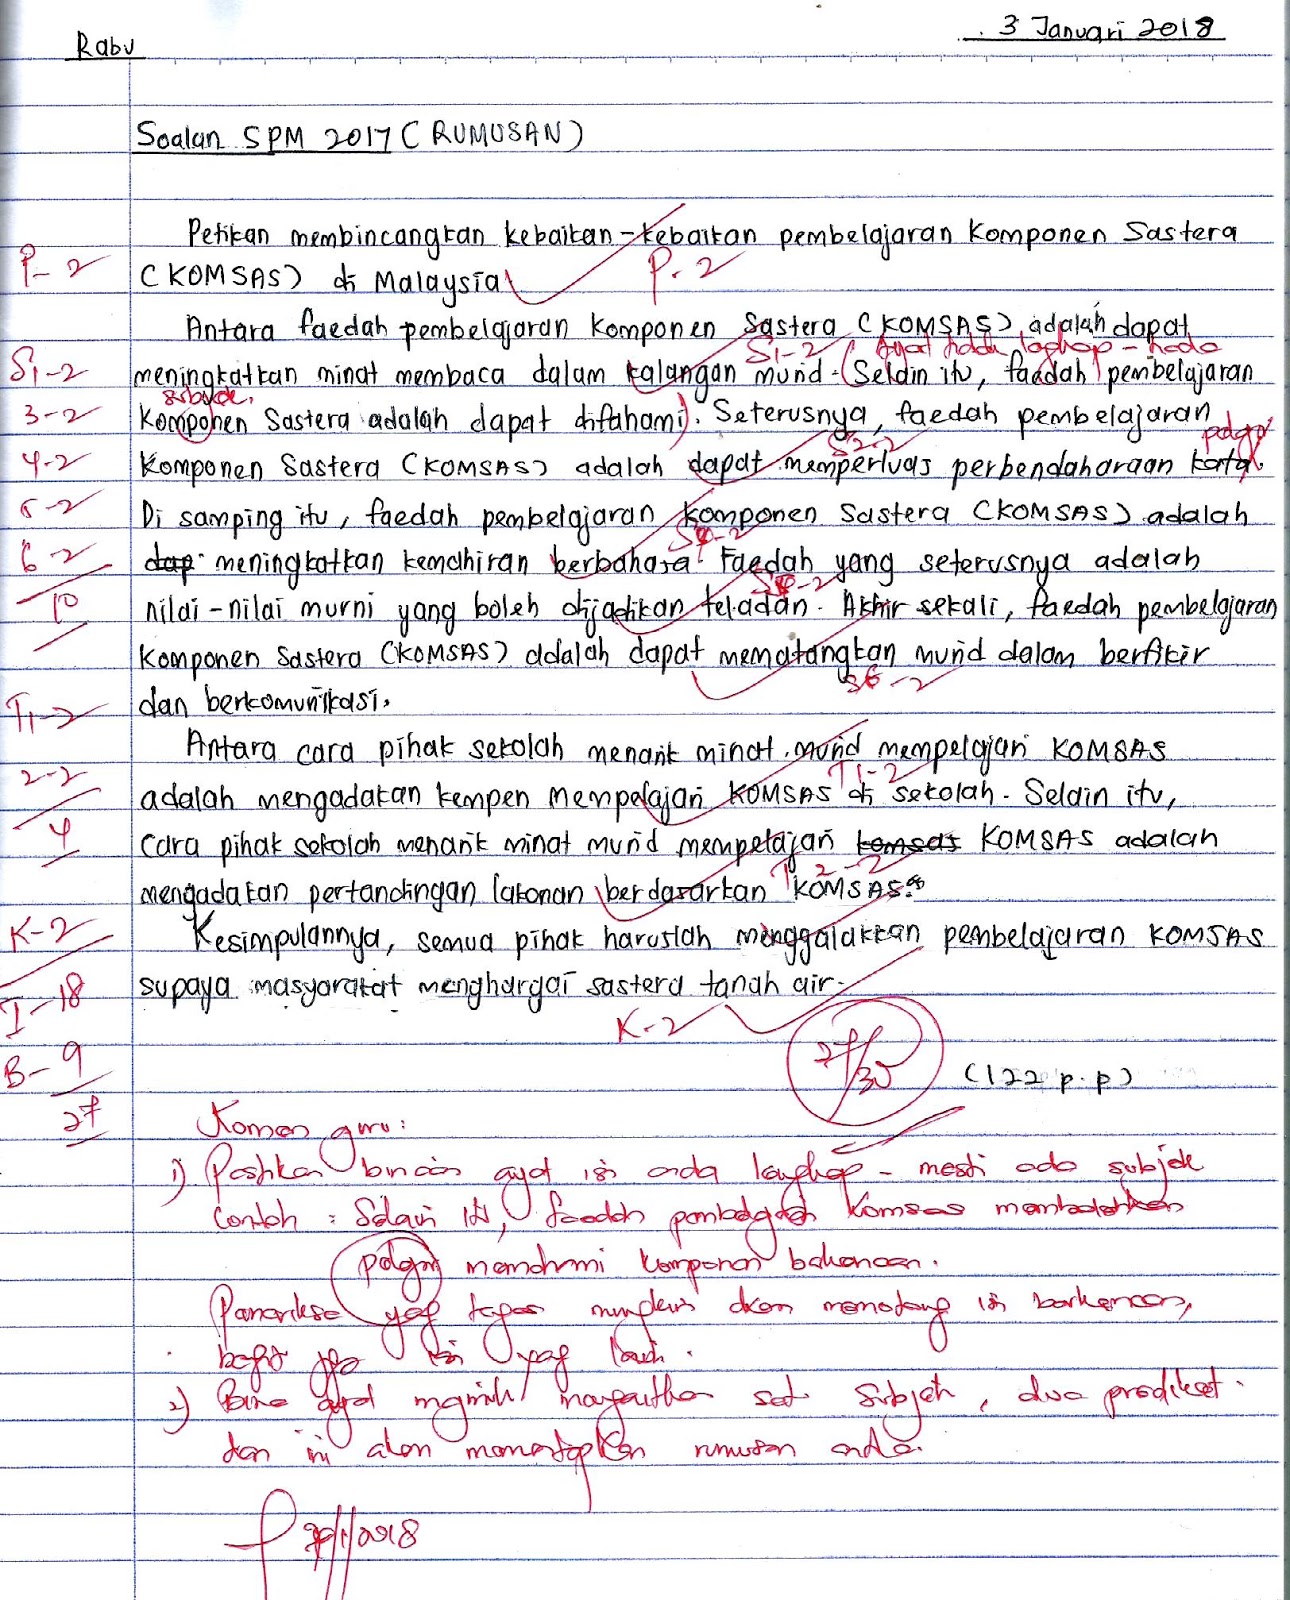 Rabu
3 Januari 2018
Soalan SPM 2017 (RUMUSAN)
Petikan membincangkan kebaikan-kebaikan pembelajaran Komponen Sastera
P-2
P-2
(KOMSAS) di Malaysia
Antara faedah pembelajaran Komponen Sastera (KOMSAS) adalah dapat
S1-2 (Ayat tidak lengkap - tiada
S1-2
meningkatkan minat membaca dalam kalangan murid. Selain itu, faedah pembelajaran
subjek.
3-2
Komponen Sastera adalah dapat difahami). Seterusnya, faedah pembelajaran
pelajar
4-2
Komponen Sastera (KOMSAS) adalah dapat memperluas perbendaharaan kata.
5-2
Di samping itu, faedah pembelajaran Komponen Sastera (KOMSAS) adalah
6-2
dap meningkatkan kemahiran berbahasa. Faedah yang seterusnya adalah
10
nilai-nilai murni yang boleh dijadikan teladan. Akhir sekali, faedah pembelajaran
Komponen Sastera (KOMSAS) adalah dapat mematangkan murid dalam berfikir
S6-2
T1-2
dan berkomunikasi.
Antara cara pihak sekolah menarik minat murid mempelajari KOMSAS
T1-2
2-2
adalah mengadakan kempen mempelajari KOMSAS di sekolah. Selain itu,
4
cara pihak sekolah menarik minat murid mempelajari komsas KOMSAS adalah
T2-2
mengadakan pertandingan lakonan berdasarkan KOMSAS.
K-2
Kesimpulannya, semua pihak haruslah menggalakkan pembelajaran KOMSAS
I-18
supaya masyarakat menghargai sastera tanah air.
K-2
B-9
27/30
(122 p.p)
27
Komen guru:
1) Pastikan binaan ayat isi anda lengkap - mesti ada subjek
Contoh : Selain itu, faedah pembelajaran Komsas membolehkan
pelajar memahami komponen berkenaan.
Pemeriksa yag tegas mungkin akan memotong isi berkenaan,
begit jga isi yag lain.
2) Bina ayat majmuk satu subjek, dua predikat.
dan ini akan memantapkan rumusan anda.
/1/2018